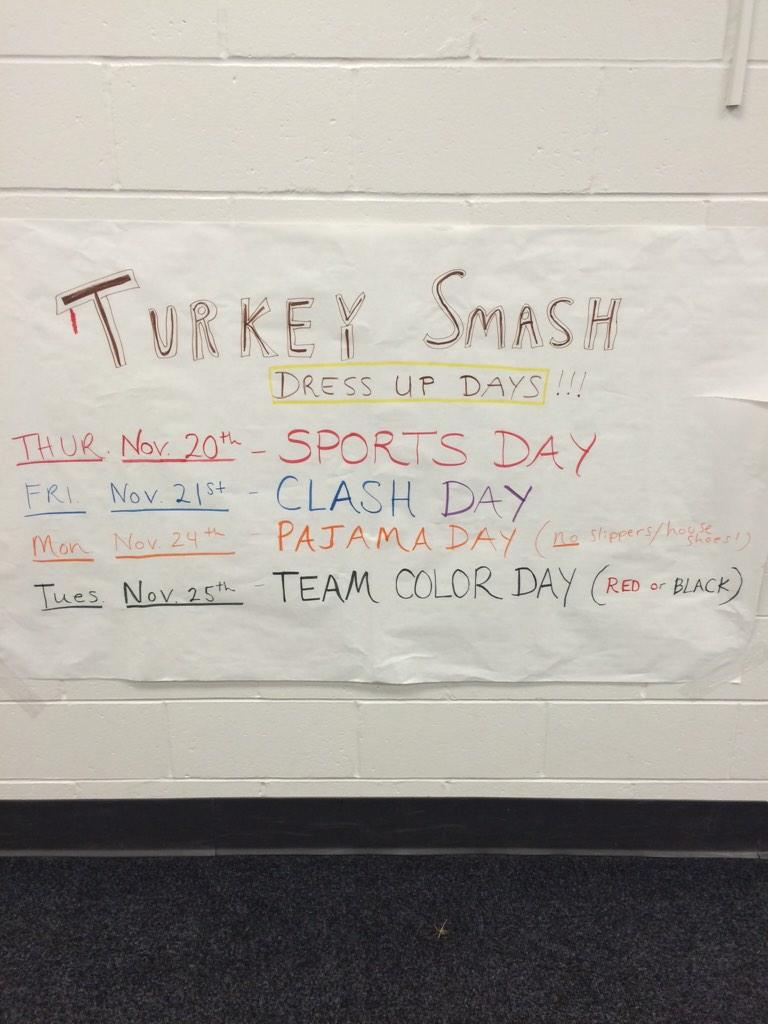 TURKEY SMASH
DRESS UP DAYS !!!
THUR. Nov. 20th - SPORTS DAY
FRI. Nov. 21st - CLASH DAY
Mon Nov. 24th - PAJAMA DAY (no slippers/house shoes!)
Tues. Nov. 25th - TEAM COLOR DAY (RED or BLACK)